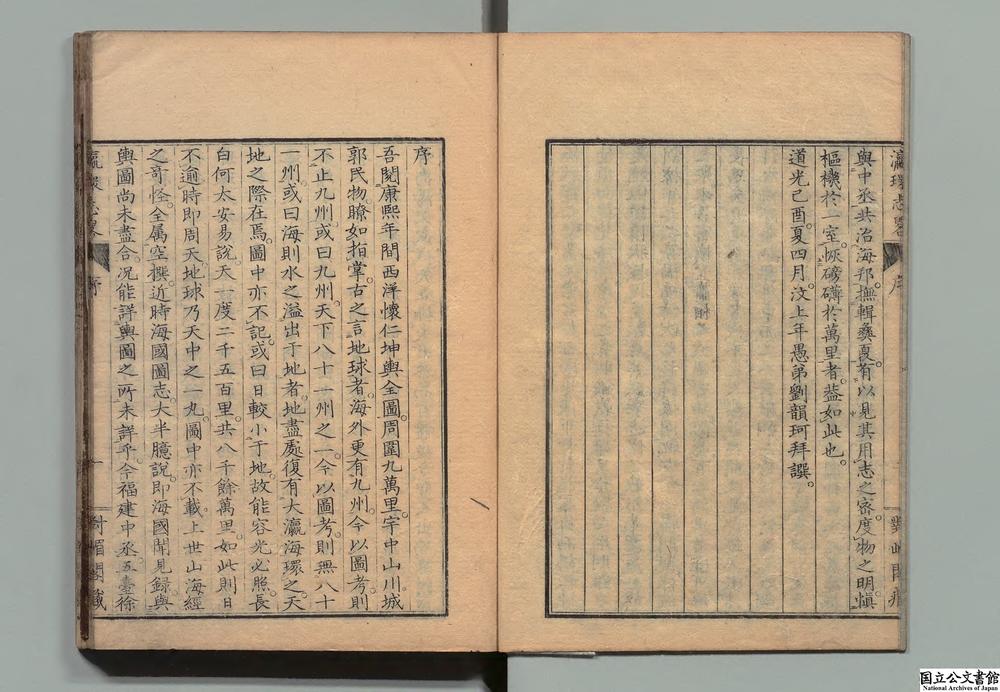 與中丞共治海邦撫輯彝夏有以見其用志之密度物之明愼
樞機於一室恢磅礴於萬里者葢如此也。
道光己酉夏四月汶上年愚弟劉韻珂拜譔。
序
吾閱康熙年間西洋懷仁坤輿全圖周圍九萬里。宇中山川城
郭民物瞭如指掌。古之言地球者。海外更有九州。今以圖考則
不止九州。或曰九州天下八十一州之一。今以圖考。則無八十
一州。或曰海則水之溢出于地者。地盡處復有大瀛海環之。天
地之際在焉。圖中亦不記。或曰日較小于地。故能容光必照。長
白何太安易說。天一度二千五百里。共八千餘萬里。如此則日
不逾時即周天。地球乃天中之一丸。圖中亦不載。上世山海經
之奇怪。全属空撰。近時海國圖志。大半臆說。即海國聞見録。與
輿圖尚未盡合。况能詳輿圖之所未詳乎。今福建中丞。五臺徐
瀛環志畧
序
一
國立公文書館
National Archives of Japan